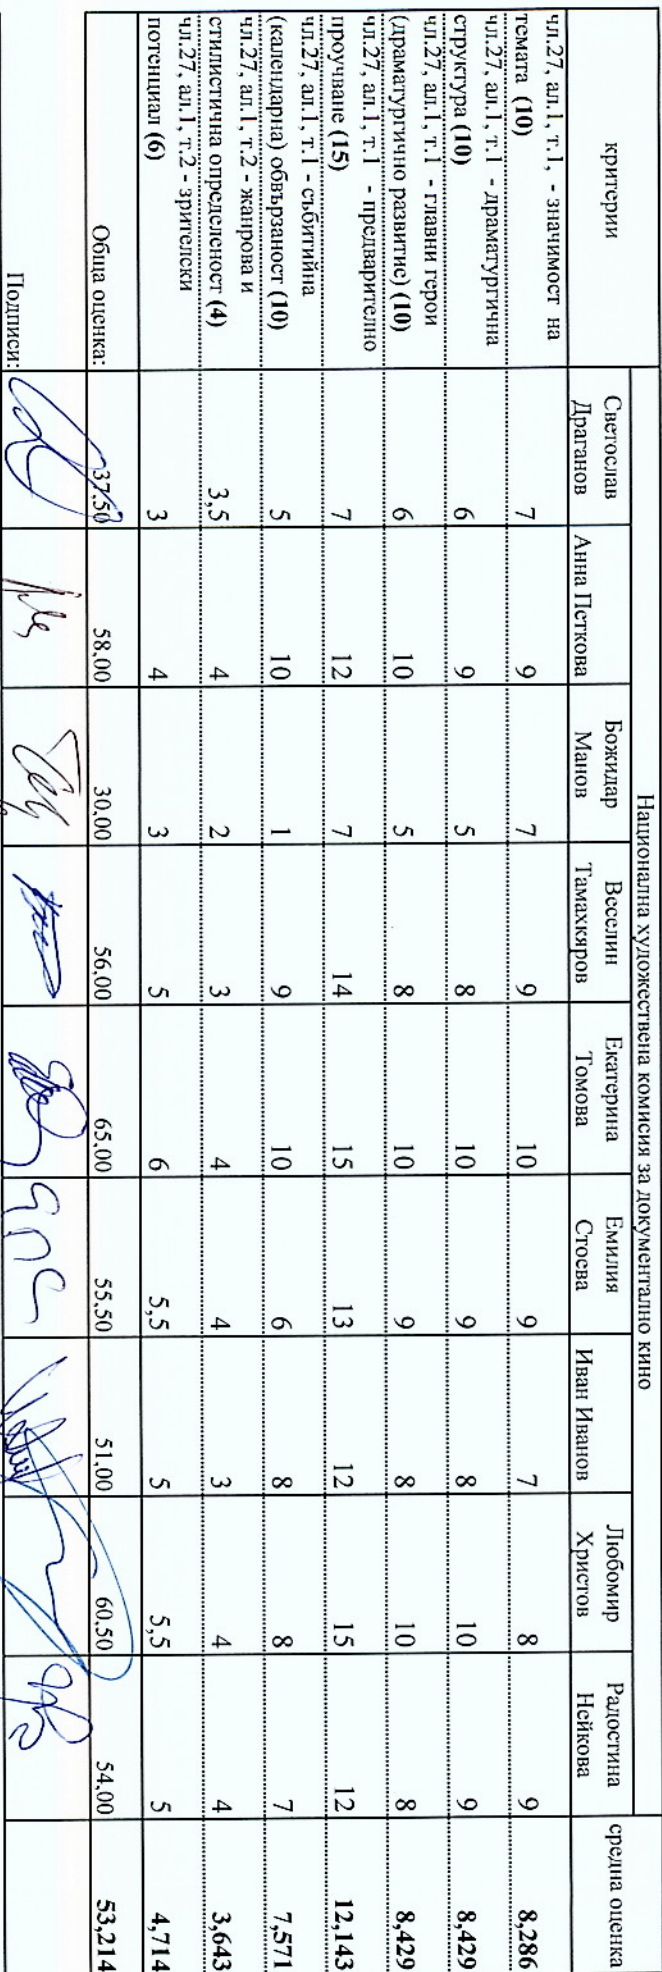 Национална художествена комисия за документално кино
критерии Светослав Драганов Анна Петкова Божидар Манов Веселин Тамахкяров Екатерина Томова Емилия Стоева Иван Иванов Любомир Христов Радостина Нейкова средна оценка
чл.27, ал.1, т.1, - значимост на
темата (10) 7 9 7 9 10 9 7 8 9 8,286
чл.27, ал.1, т.1 - драматургична
структура (10) 6 9 5 8 10 9 8 10 9 8,429
чл.27, ал.1, т.1 - главни герои
(драматургично развитие) (10) 6 10 5 8 10 9 8 10 8 8,429
чл.27, ал.1, т.1 - предварително
проучване (15) 7 12 7 14 15 13 12 15 12 12,143
чл.27, ал.1, т.1 - събитийна
(календарна) обвързаност (10) 5 10 1 9 10 6 8 8 7 7,571
чл.27, ал.1, т.2 - жанрова и
стилистична определеност (4) 3,5 4 2 3 4 4 3 4 4 3,643
чл.27, ал.1, т.2 - зрителски
потенциал (6) 3 4 3 5 6 5,5 5 5,5 5 4,714
Обща оценка: 37,50 58,00 30,00 56,00 65,00 55,50 51,00 60,50 54,00 53,214
Подписи: